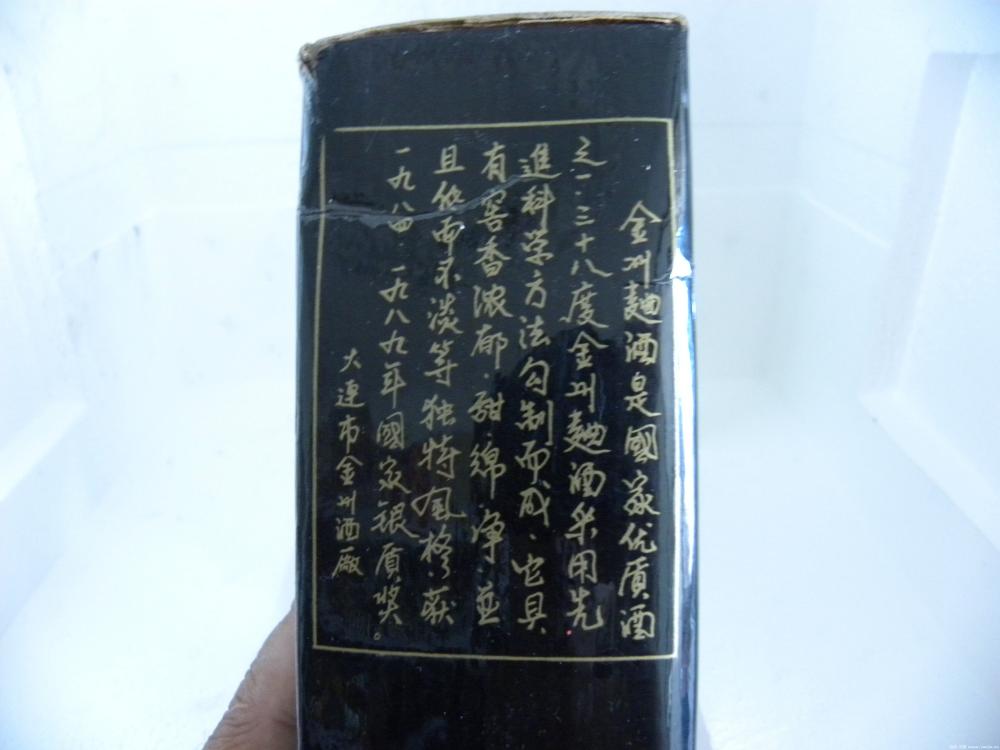 金州麯酒是國家优质酒
之一.三十八度金州麯酒采用先
進科学方法勾制而成.它具
有窖香浓郁.甜.绵.净.並
且低而不淡等独特風格.获
一九八四.一九八九年國家银质奖。
大連市金州酒廠